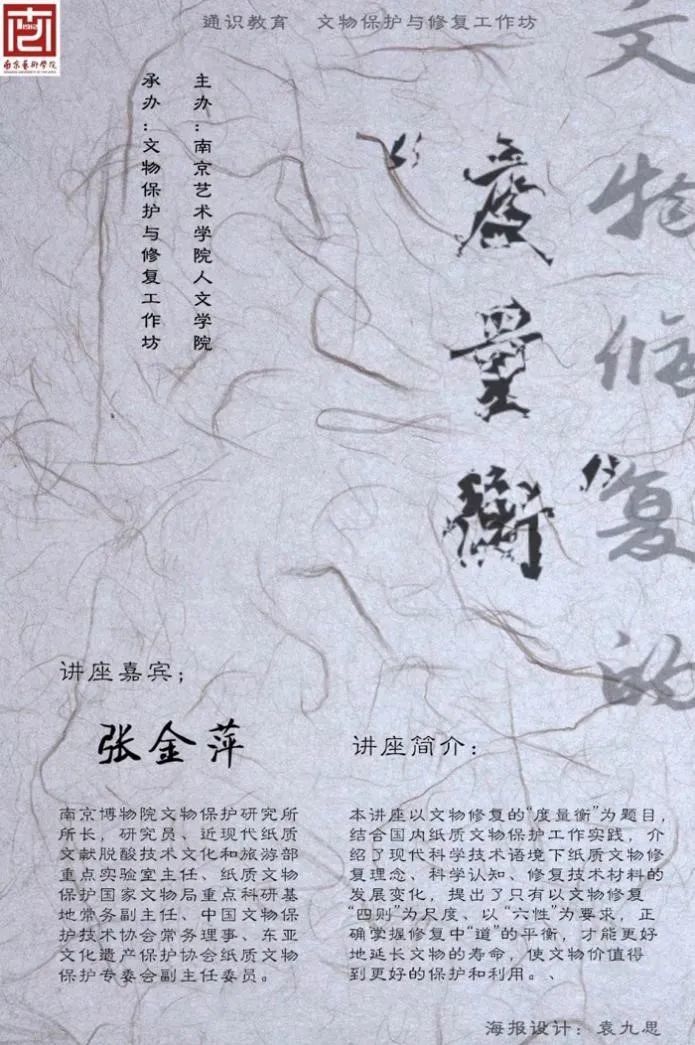 南
1912
南京艺术学院
通识教育 文物保护与修复工作坊
文物修复的
“度量衡”
主办：南京艺术学院人文学院
承办：文物保护与修复工作坊
讲座嘉宾；
张金萍
南京博物院文物保护研究所
所长，研究员、近现代纸质
文献脱酸技术文化和旅游部
重点实验室主任、纸质文物
保护国家文物局重点科研基
地常务副主任、中国文物保
护技术协会常务理事、东亚
文化遗产保护协会纸质文物
保护专委会副主任委员。
讲座简介：
本讲座以文物修复的“度量衡”为题目，
结合国内纸质文物保护工作实践，介
绍了现代科学技术语境下纸质文物修
复理念、科学认知、修复技术材料的
发展变化，提出了只有以文物修复
“四则”为尺度、以“六性”为要求，正
确掌握修复中“道”的平衡，才能更好
地延长文物的寿命，使文物价值得
到更好的保护和利用。、
海报设计：袁九思